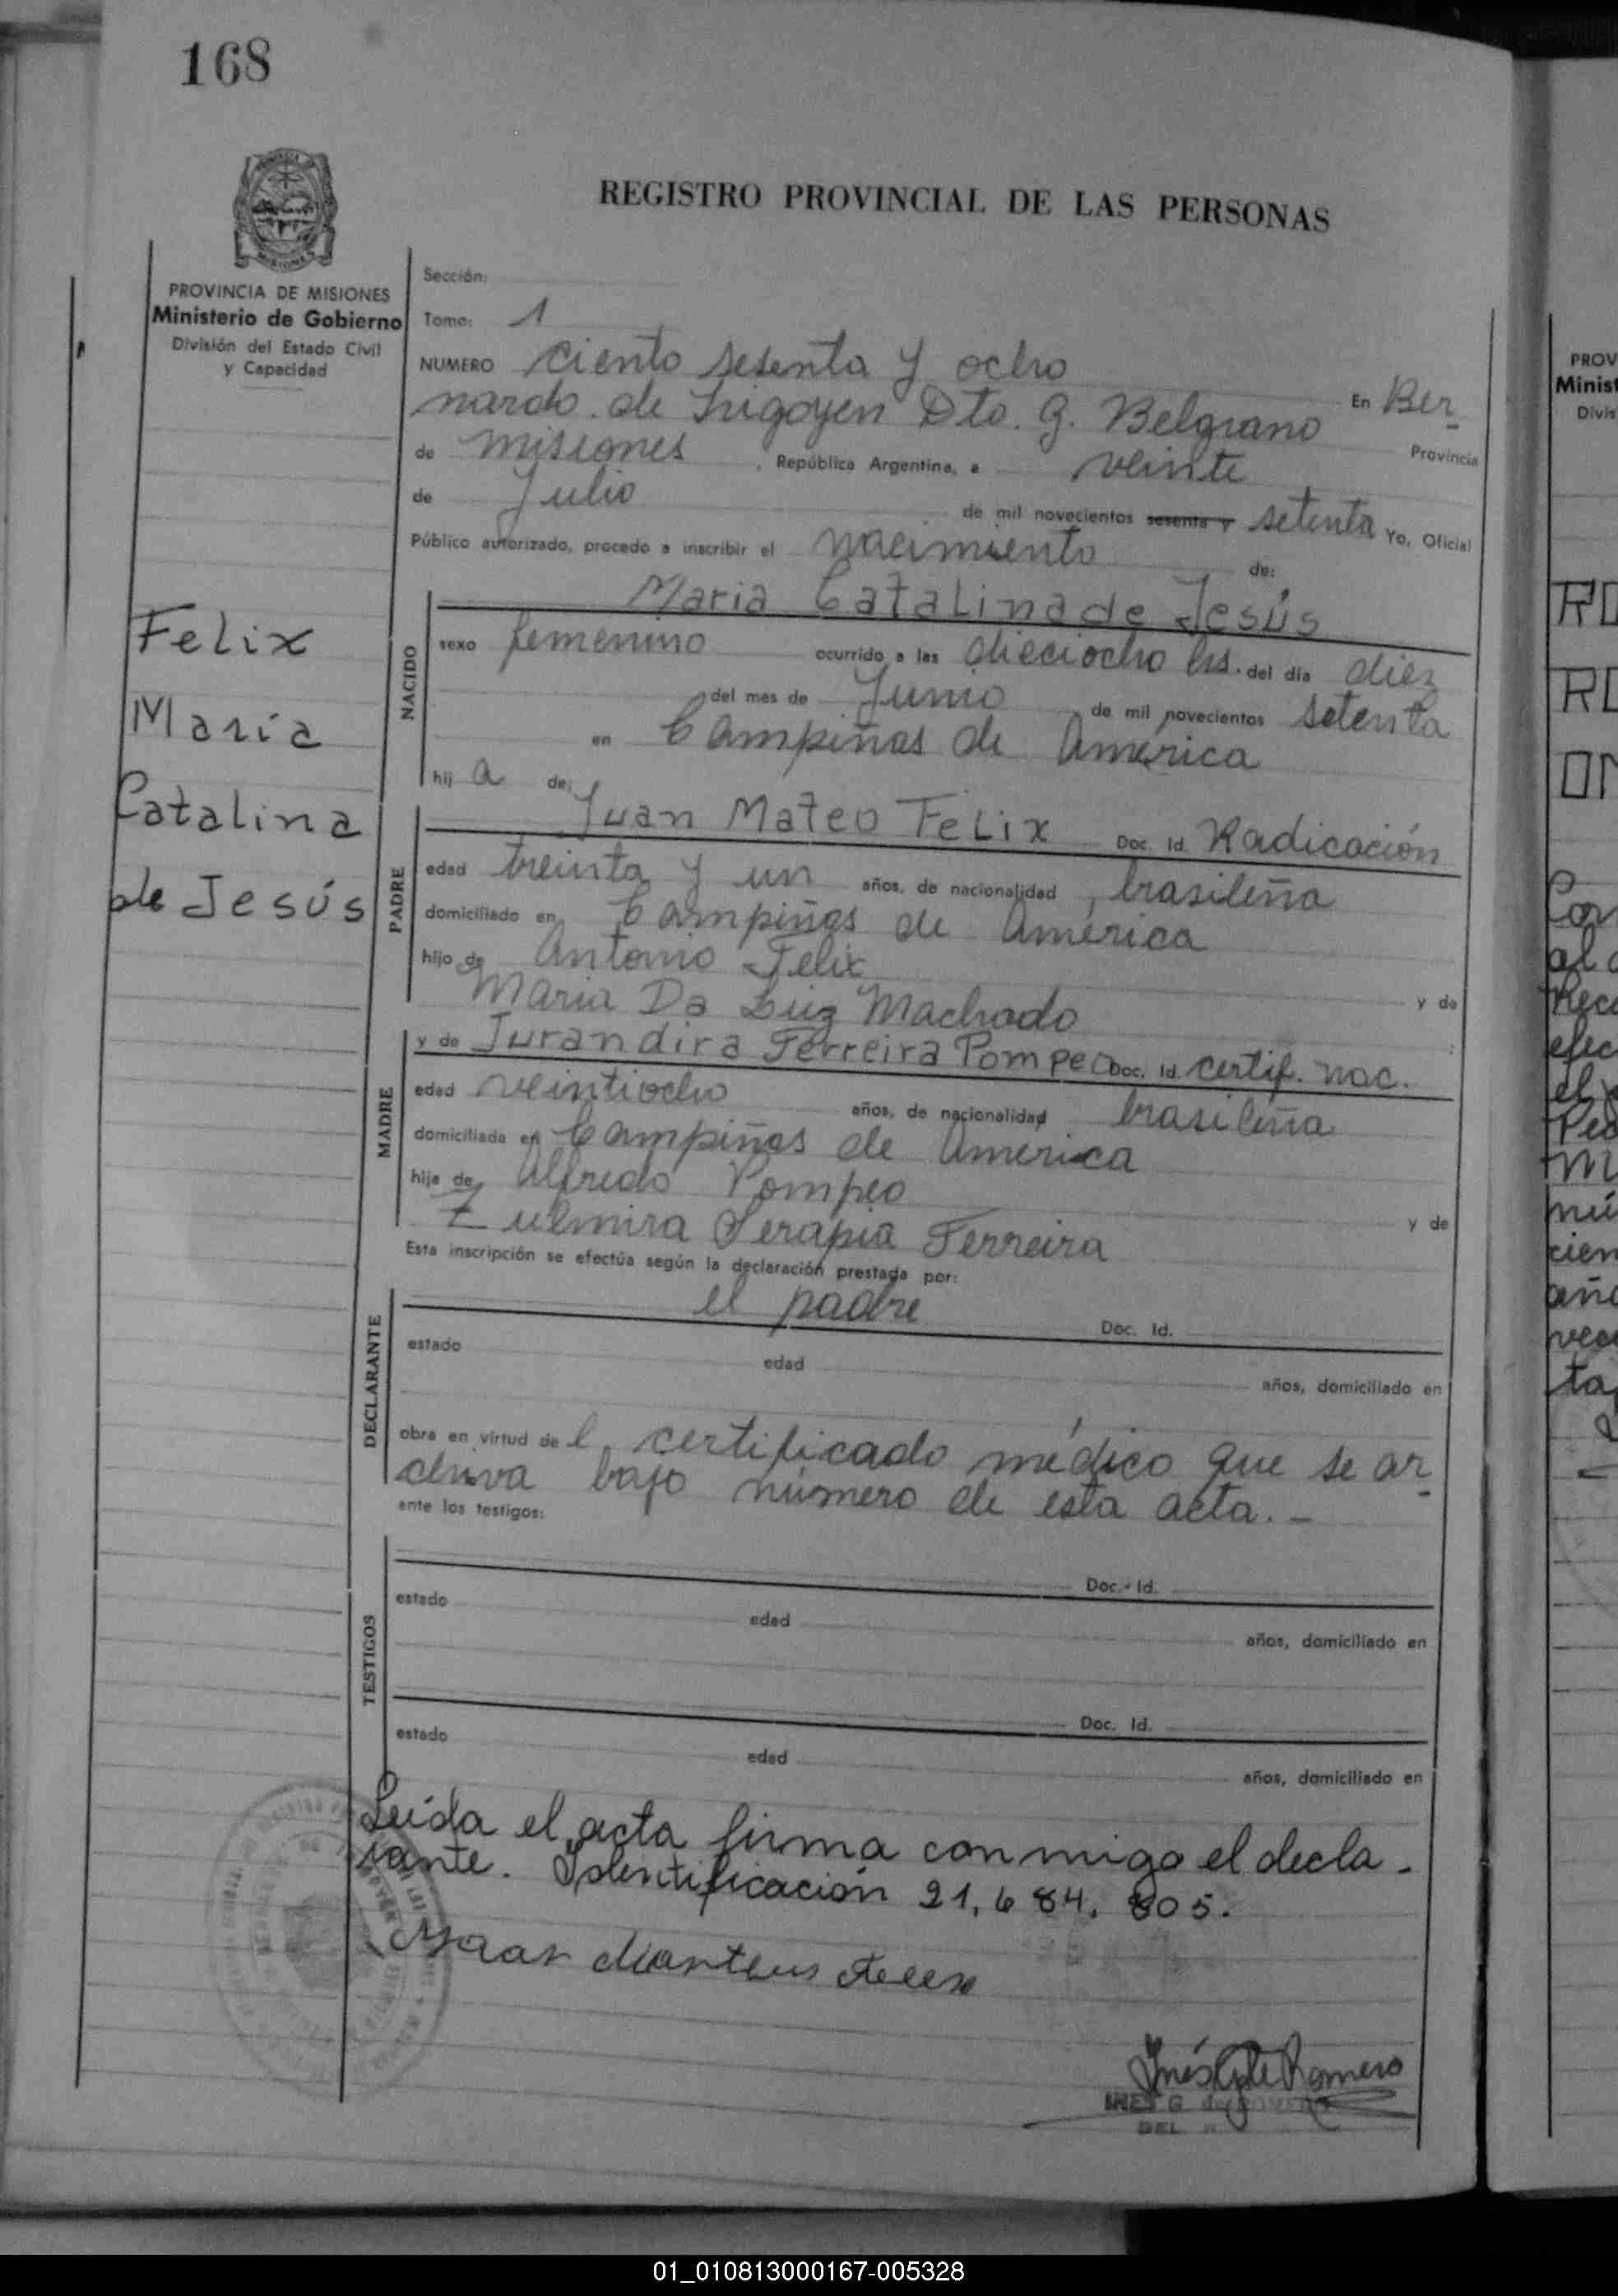 168
REGISTRO PROVINCIAL DE LAS PERSONAS
MISIONES
PROVINCIA DE MISIONES
Ministerio de Gobierno
División del Estado Civil
y Capacidad
Felix
María
Catalina
de Jesús
Sección:
Tomo: 1
NUMERO ciento sesenta y ocho
En Ber-
nardo de Irigoyen Dto. G. Belgrano
Provincia
de Misiones, República Argentina, a veinte
de Julio de mil novecientos sesenta y setenta Yo, Oficial
Público autorizado, procedo a inscribir el nacimiento de:
NACIDO
Maria Catalina de Jesús
sexo femenino ocurrido a las dieciocho hs. del día diez
del mes de Junio de mil novecientos setenta
en Campiñas de América
hij a de:
PADRE
Juan Mateo Felix Doc. Id. Radicación
edad treinta y un años, de nacionalidad brasileña
domiciliado en Campiñas de América
hijo de Antonio Felix
y de
Maria Da Luz Machado
MADRE
y de Jurandira Ferreira Pompeo Doc. Id. certif. nac.
edad veintiocho años, de nacionalidad brasileña
domiciliada en Campiñas de America
hija de Alfredo Pompeo
y de
Zulmira Serapia Ferreira
Esta inscripción se efectúa según la declaración prestada por:
DECLARANTE
el padre Doc. Id.
estado edad años, domiciliado en
obra en virtud de l certificado médico que se ar-
chiva bajo número de esta acta. -
ante los testigos:
TESTIGOS
Doc. Id.
estado edad años, domiciliado en
Doc. Id.
estado edad años, domiciliado en
Leída el acta firma conmigo el decla-
rante. Identificación 21.684.805.
Inés G de Romero
INES G. de ROMERO
01_010813000167-005328
PROV
Minist
Divis